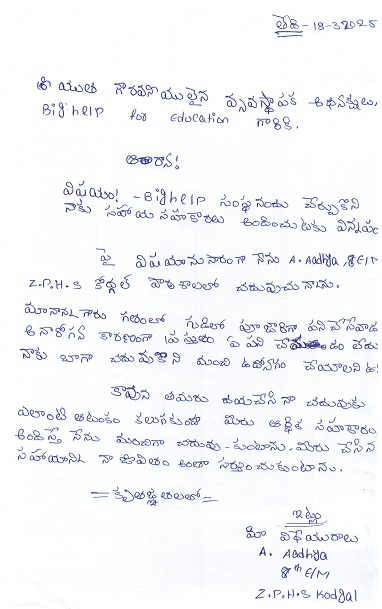 తేది - 18-3-2025
శ్రీ యుత గౌరవనీయులైన వ్యవస్థాపక అధ్యక్షులు,
Bighelp for Education గారికి,
విషయం! - Bighelp సంస్థ నందు చేర్చుకొని
నాకు సహాయ సహకారాలు అందించుటకు విన్నపం
పై విషయానుసారంగా నేను A. Aadhya, 8 E/M
Z.P.H.S కోడ్గల్ పాఠశాలలో చదువుచున్నాను.
మా నాన్న గారు గతంలో గుడిలో పూజారిగా పని చేసేవాడు
అనారోగ్య కారణంగా ప్రస్తుతం ఏ పని చేయడం లేదు
నాకు బాగా చదువుకొని మంచి ఉద్యోగం చేయాలని
కావున తమరు దయచేసి నా చదువుకు
ఎలాంటి ఆటంకం కలుగకుండా మీరు ఆర్థిక సహకారం
అందిస్తే నేను మంచిగా చదువు-కుంటాను. మీరు చేసిన
సహాయాన్ని నా జీవితం అంతా గుర్తుంచుకుంటాను.
= కృతజ్ఞతలతో =
ఇట్లు
మీ విధేయురాలు
A. Aadhya
8th E/M
Z.P.H.S Kodgal